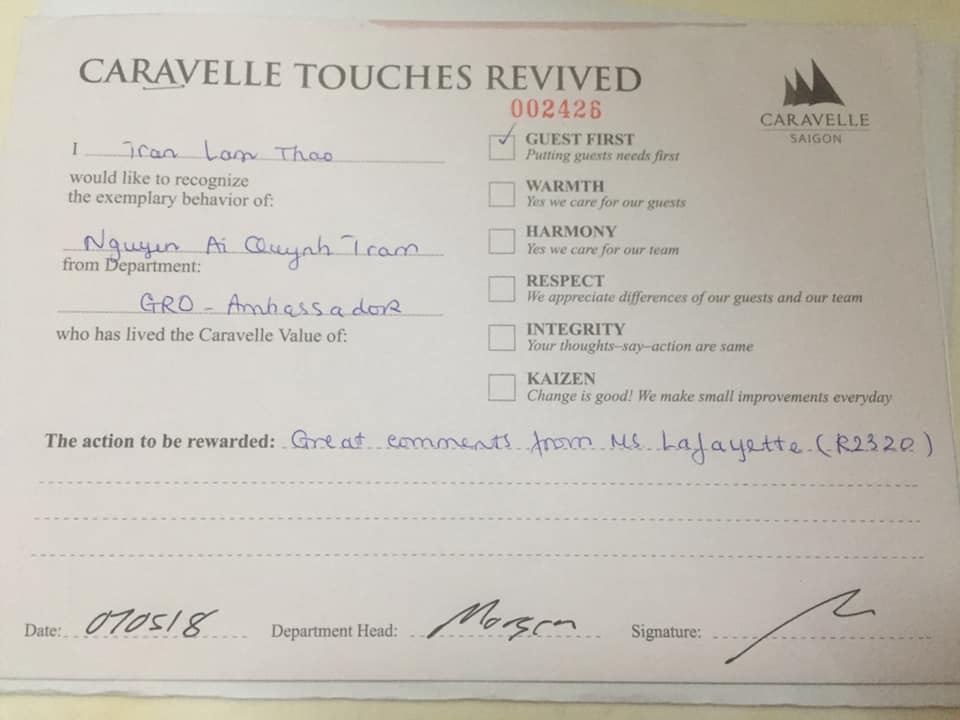 CARAVELLE TOUCHES REVIVED
002426
CARAVELLE
SAIGON
I Tran Lam Thao
would like to recognize
the exemplary behavior of:
Nguyen Ai Quynh Tram
from Department:
GRO - Ambassador
who has lived the Caravelle Value of:
GUEST FIRST
Putting guests needs first
WARMTH
Yes we care for our guests
HARMONY
Yes we care for our team
RESPECT
We appreciate differences of our guests and our team
INTEGRITY
Your thoughts–say–action are same
KAIZEN
Change is good! We make small improvements everyday
The action to be rewarded: Great comments from Ms Lafayette (R2320)
Date: 070518 Department Head: Morgan Signature: